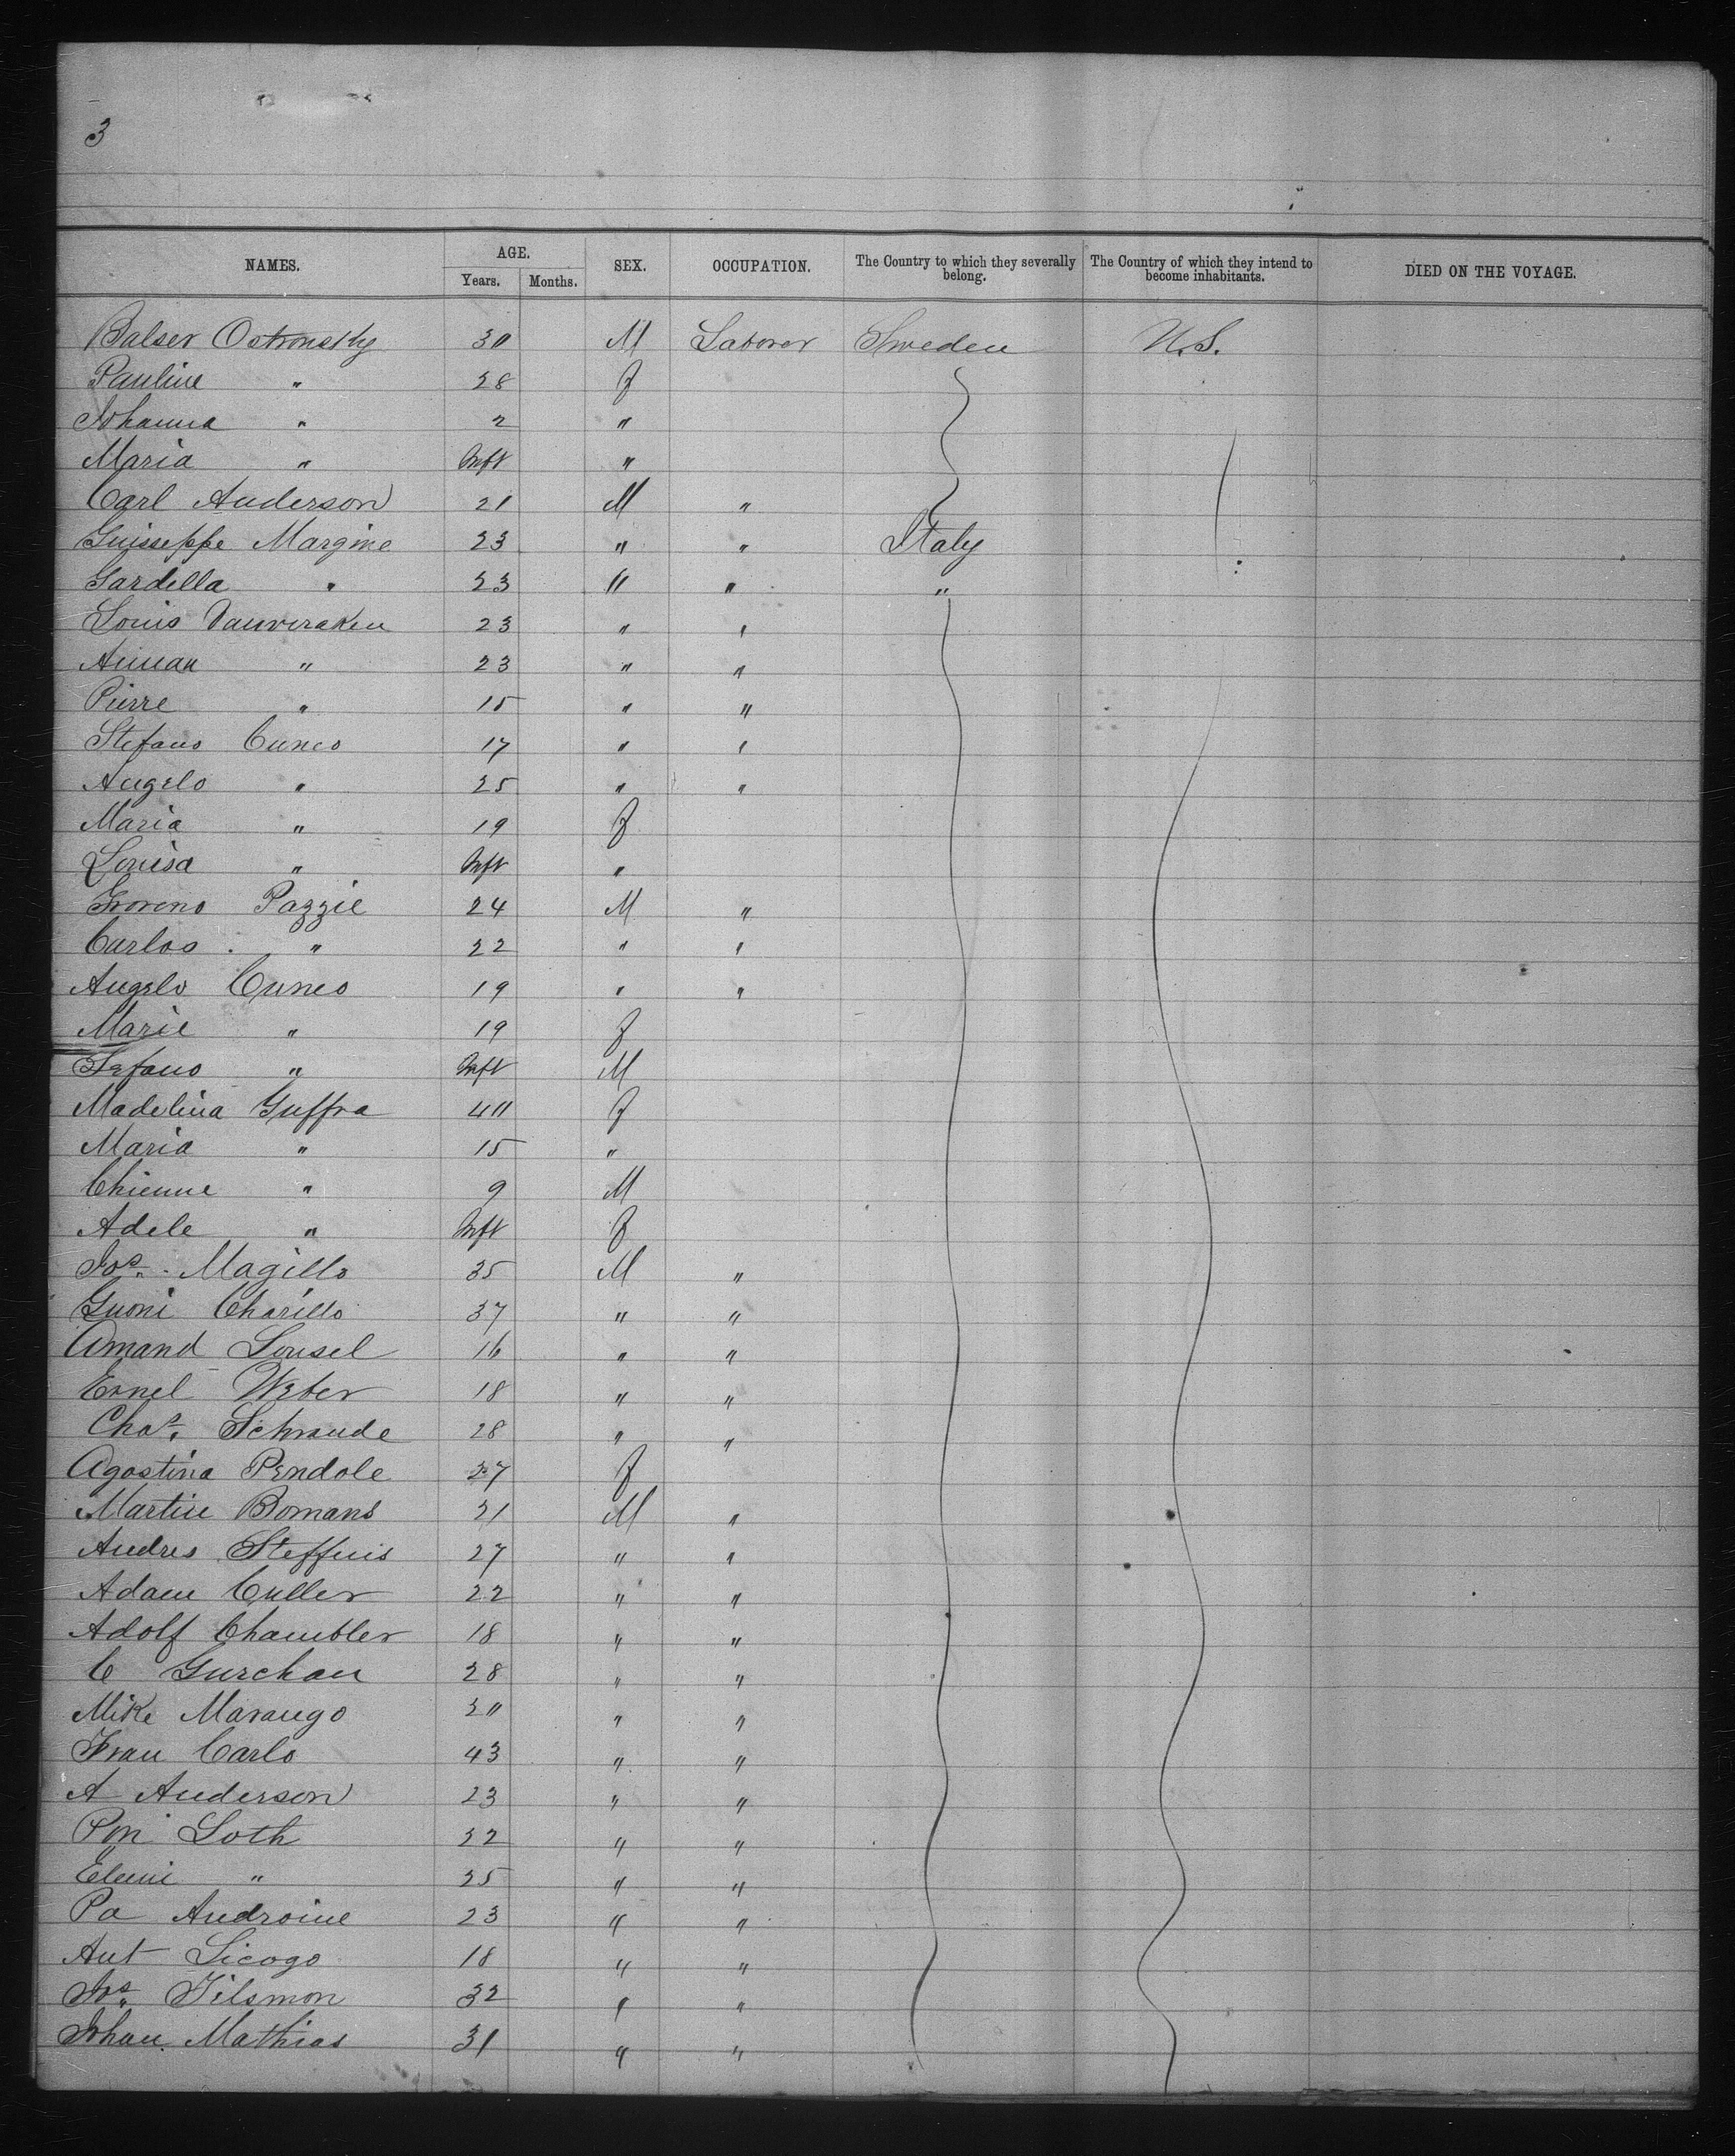 3
NAMES. AGE. SEX. OCCUPATION. The Country to which they severally belong. The Country of which they intend to become inhabitants. DIED ON THE VOYAGE.
Years. Months.
Balser Ostronsky 30 M Laborer Sweden U.S.
Pauline " 28 f
Johanna " 2 "
Maria " Inft "
Carl Anderson 21 M "
Guisseppe Margine 23 " " Italy
Gardella " 23 " " "
Louis Vanveraken 23 " "
" 23 " "
Pierre " 15 " "
Stefano Cuneo 17 " "
Angelo " 25 " "
Maria " 19 f
Louisa " Inft "
Pazzie 24 M "
Carlos " 22 " "
Angelo Cuneo 19 " "
Marie " 19 f
Stefano " Inft M
Madelina Guffra 40 f
Maria " 15 "
" 9 M
Adele " Inft f
Jos. Magillo 35 M "
Guoni Charillo 37 " "
Amand Lousel 16 " "
Ernel Weber 18 " "
Chas. Schraude 28 " "
Agostina Pendole 27 f
Martin Bomans 21 M "
Andres Steffins 27 " "
Adam Culler 22 " "
Adolf Chambler 18 " "
C Gurchan 28 " "
Mike Marango 30 " "
Fran Carlo 43 " "
A Anderson 23 " "
Loth 32 " "
" 25 " "
Pa Androine 23 " "
Ant Licogo 18 " "
Jos. Tilsmon 32 " "
Johan Mathias 31 " "